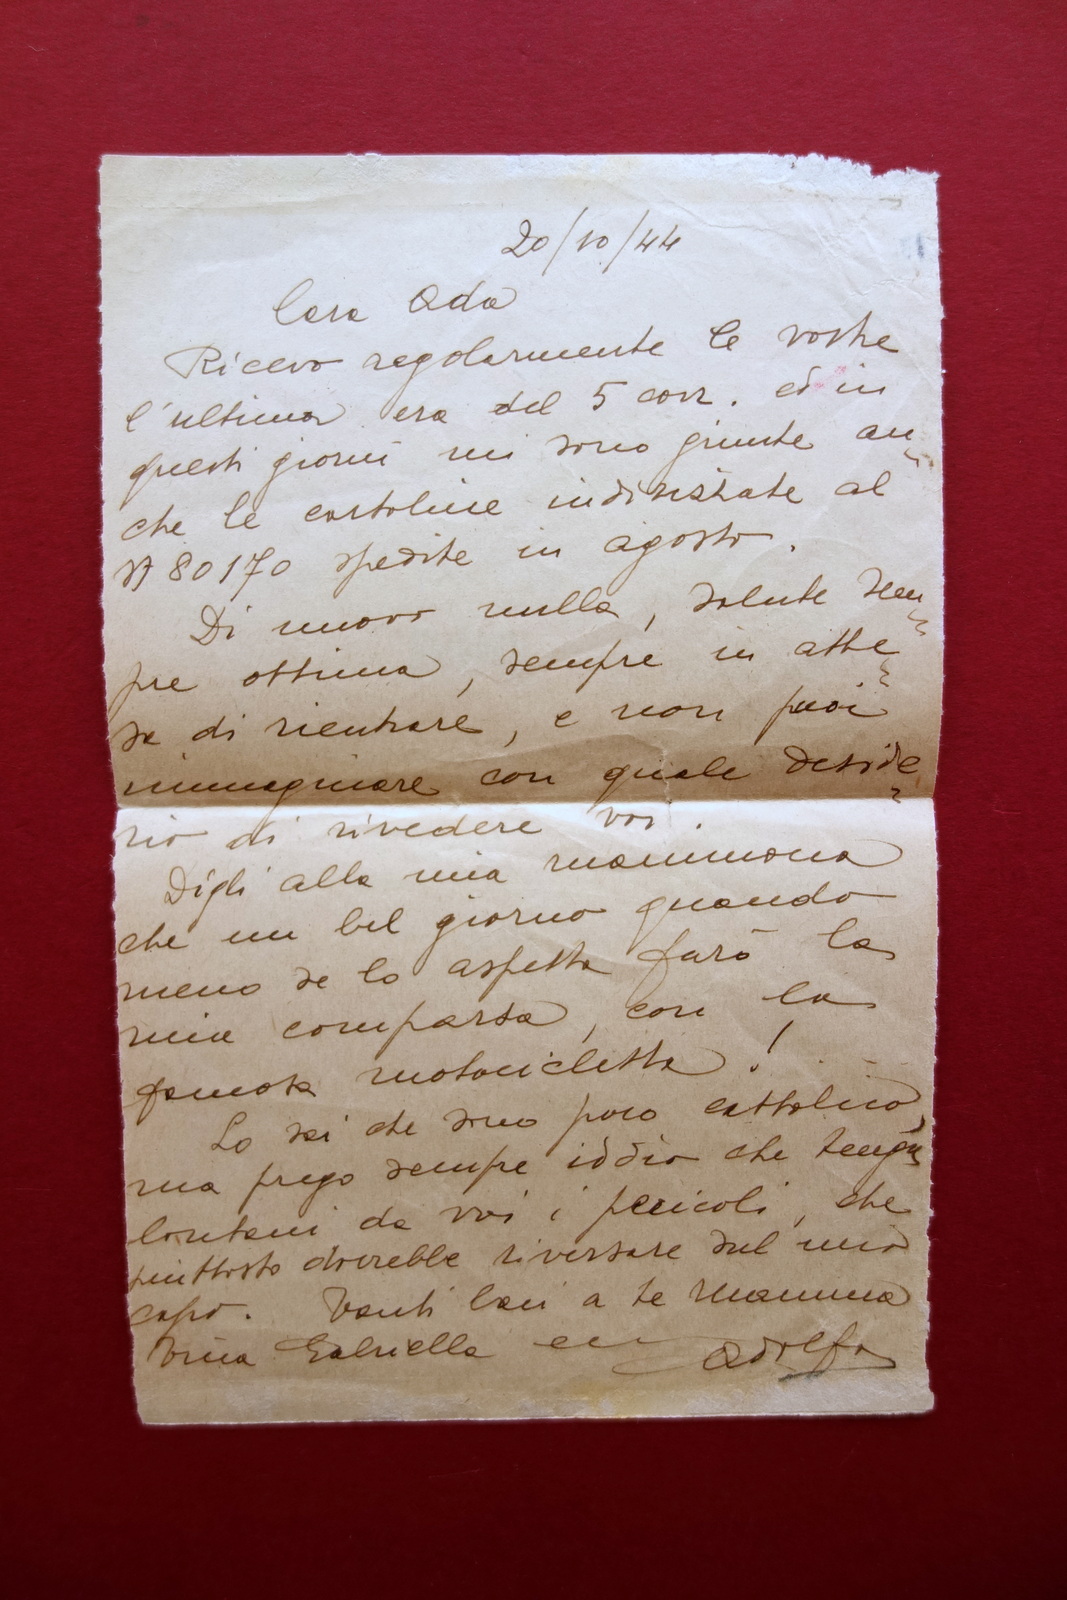 20/10/44
Cara Ada
Ricevo regolarmente le vostre
l'ultima era del 5 corr. ed in
questi giorni mi sono giunte an
che le cartoline indirizzate al
N 80170 spedite in agosto.
Di nuovo nulla, salute sem
pre ottima, sempre in atte
sa di rientrare, e non puoi
immaginare con quale deside
rio di rivedere voi.
Digli alla mia mammona
che un bel giorno quando
meno se lo aspetta farò la
mia comparsa, con la
famosa motocicletta!
Lo sai che sono poco cattolico,
ma prego sempre iddio che tenga
lontani da voi i pericoli, che
piuttosto dovrebbe riversare sul mio
capo. Tanti baci a te mamma
Gabriella ecc Adolfo